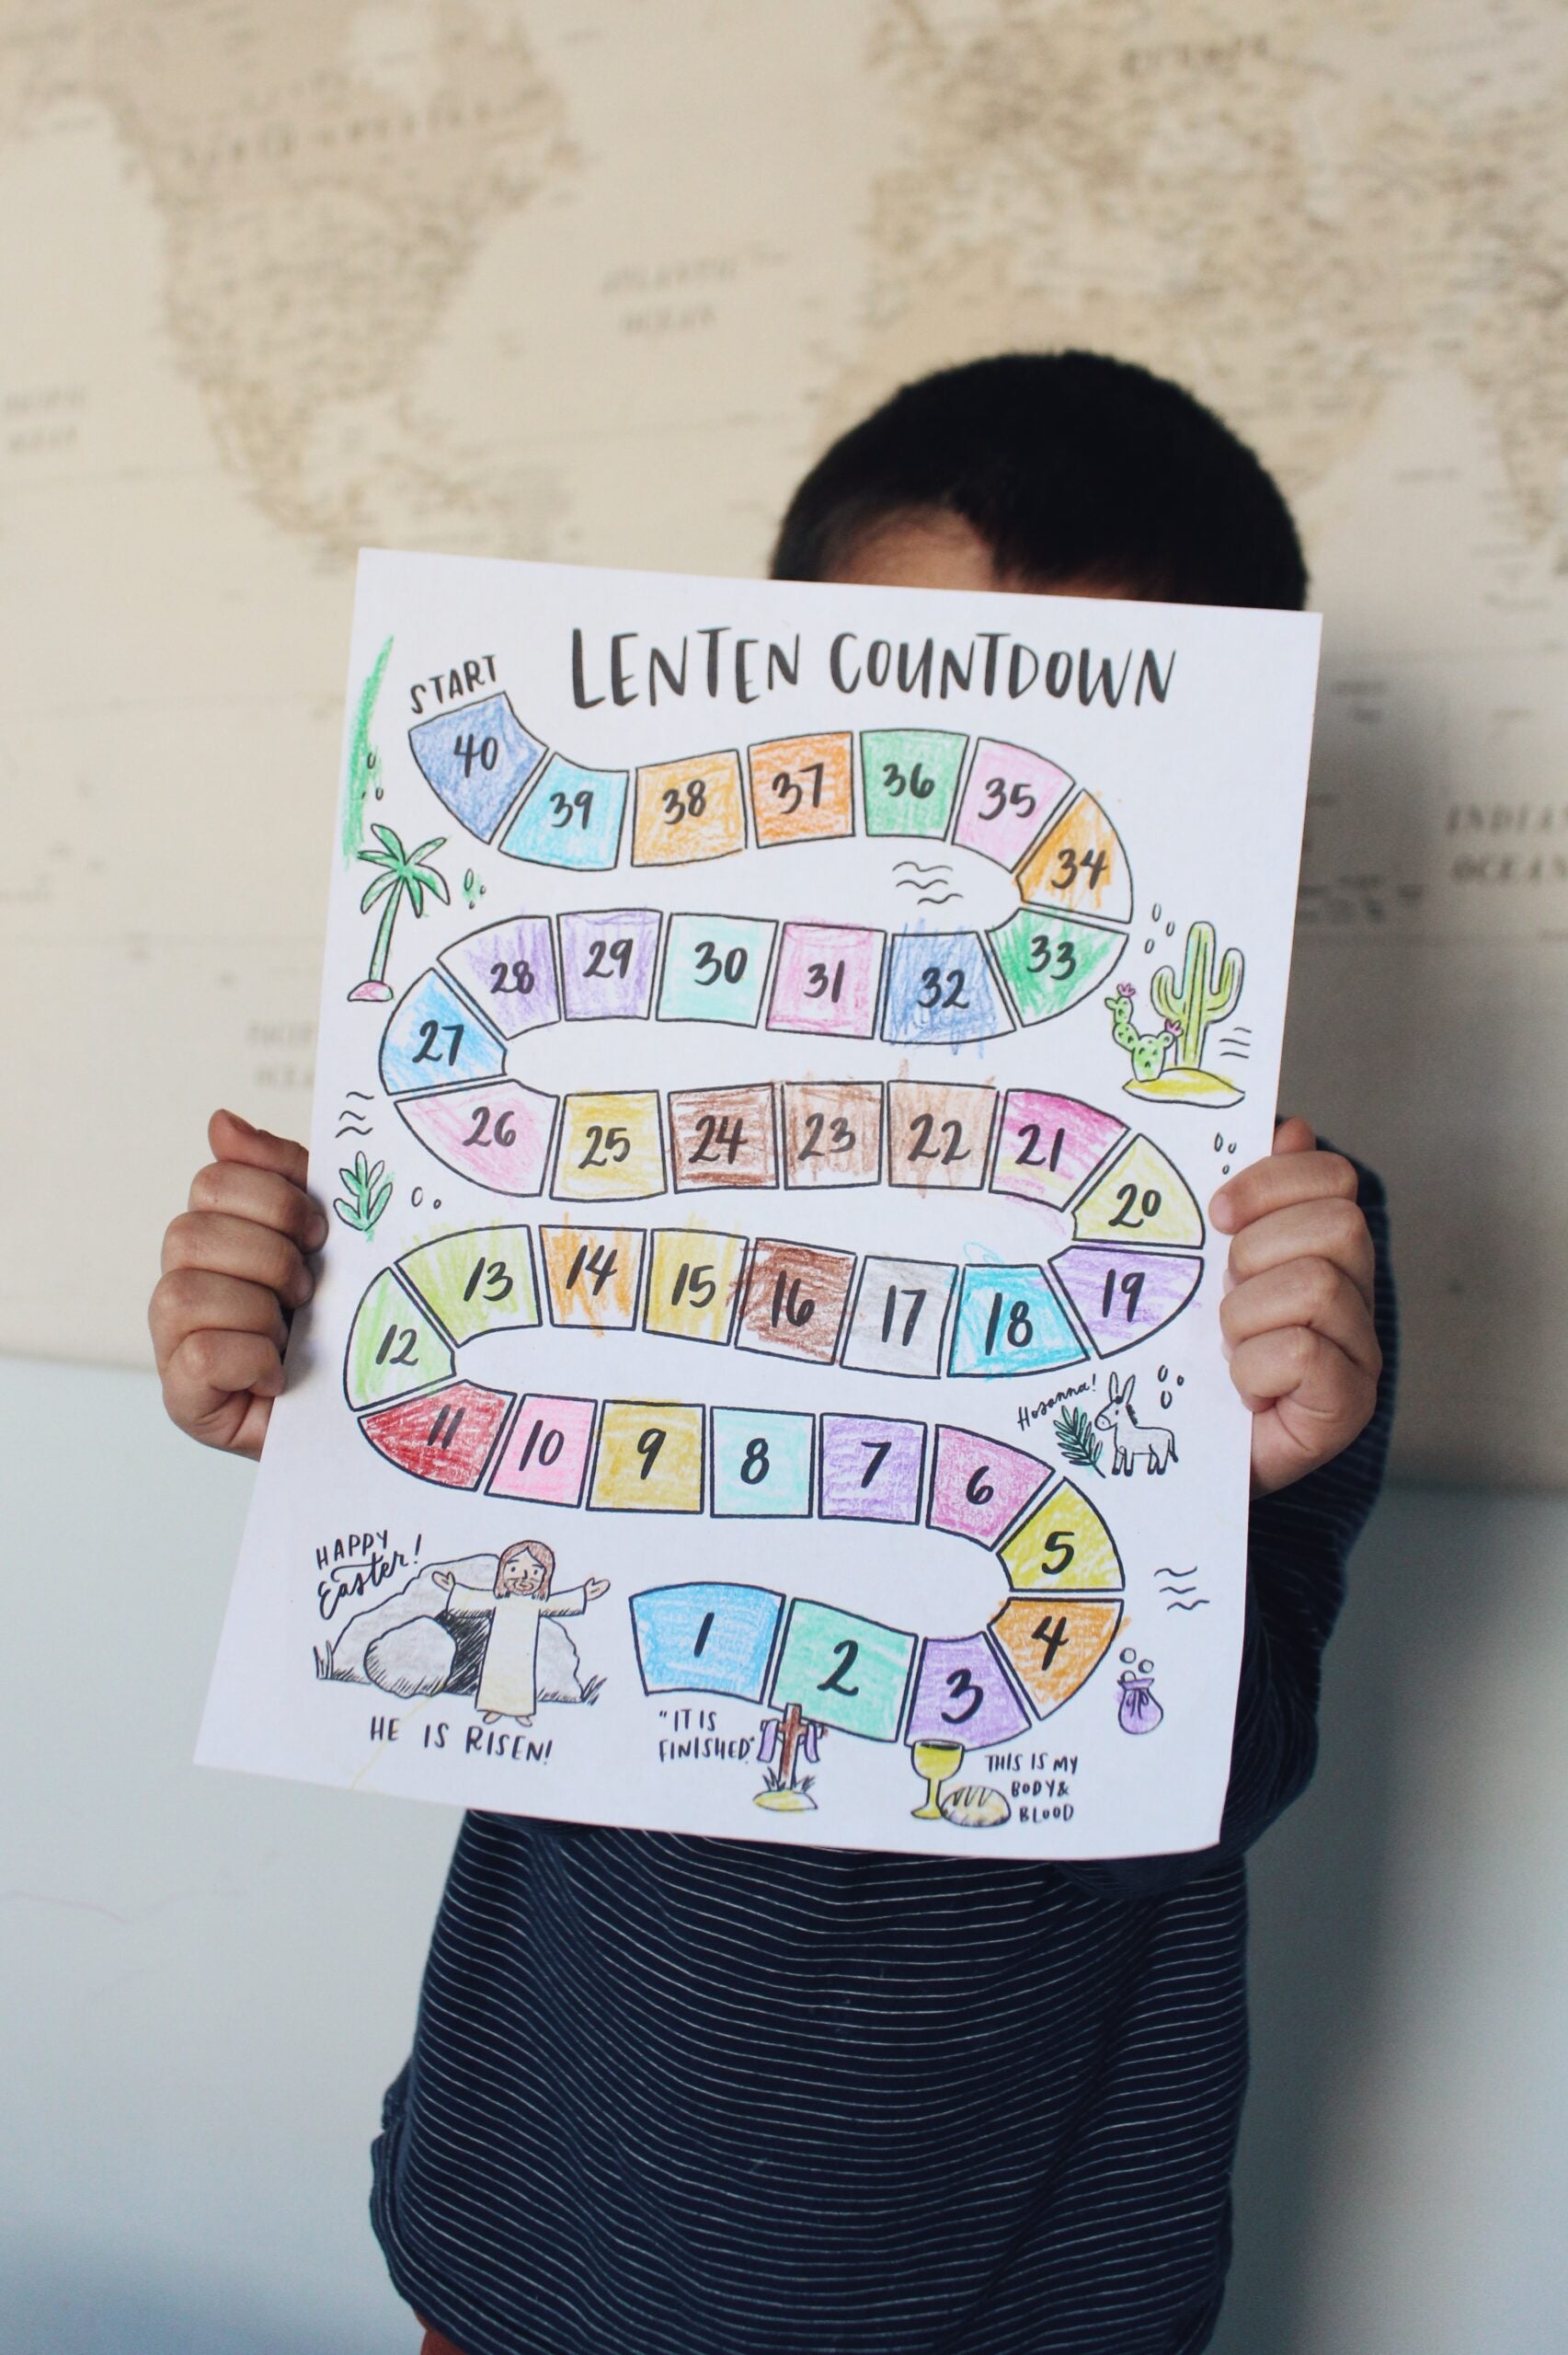 EUROPE
NORTH AMERICA
ATLANTIC
OCEAN
PACIFIC
OCEAN
INDIAN
OCEAN
LENTEN COUNTDOWN
START
40
39
38
37
36
35
34
33
32
31
30
29
28
27
26
25
24
23
22
21
20
19
18
17
16
15
14
13
12
11
10
9
8
7
6
5
4
3
2
1
Hosanna!
HAPPY
Easter!
HE IS RISEN!
"IT IS
FINISHED"
THIS IS MY
BODY &
BLOOD